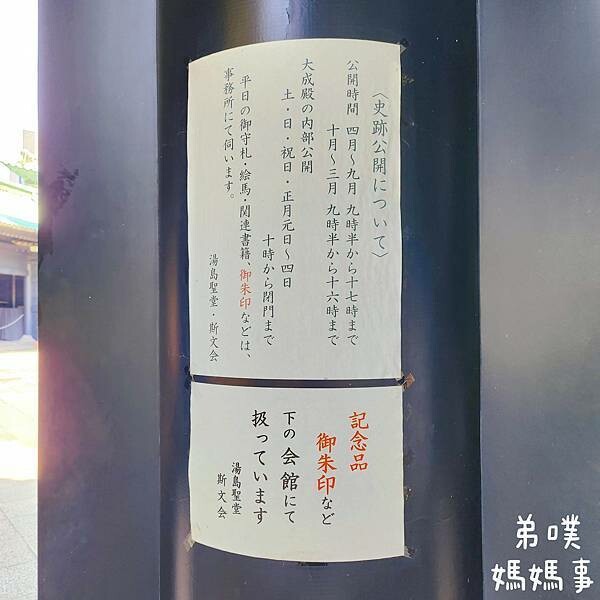 〈史跡公開について〉
公開時間 四月～九月 九時半から十七時まで
十月～三月 九時半から十六時まで
大成殿の内部公開
土・日・祝日・正月元日～四日
十時から閉門まで
平日の御守札・絵馬・関連書籍、御朱印などは、
事務所にて伺います。
湯島聖堂・斯文会
記念品
御朱印など
下の会館にて
扱っています
湯島聖堂
斯文会
弟噗
媽媽事